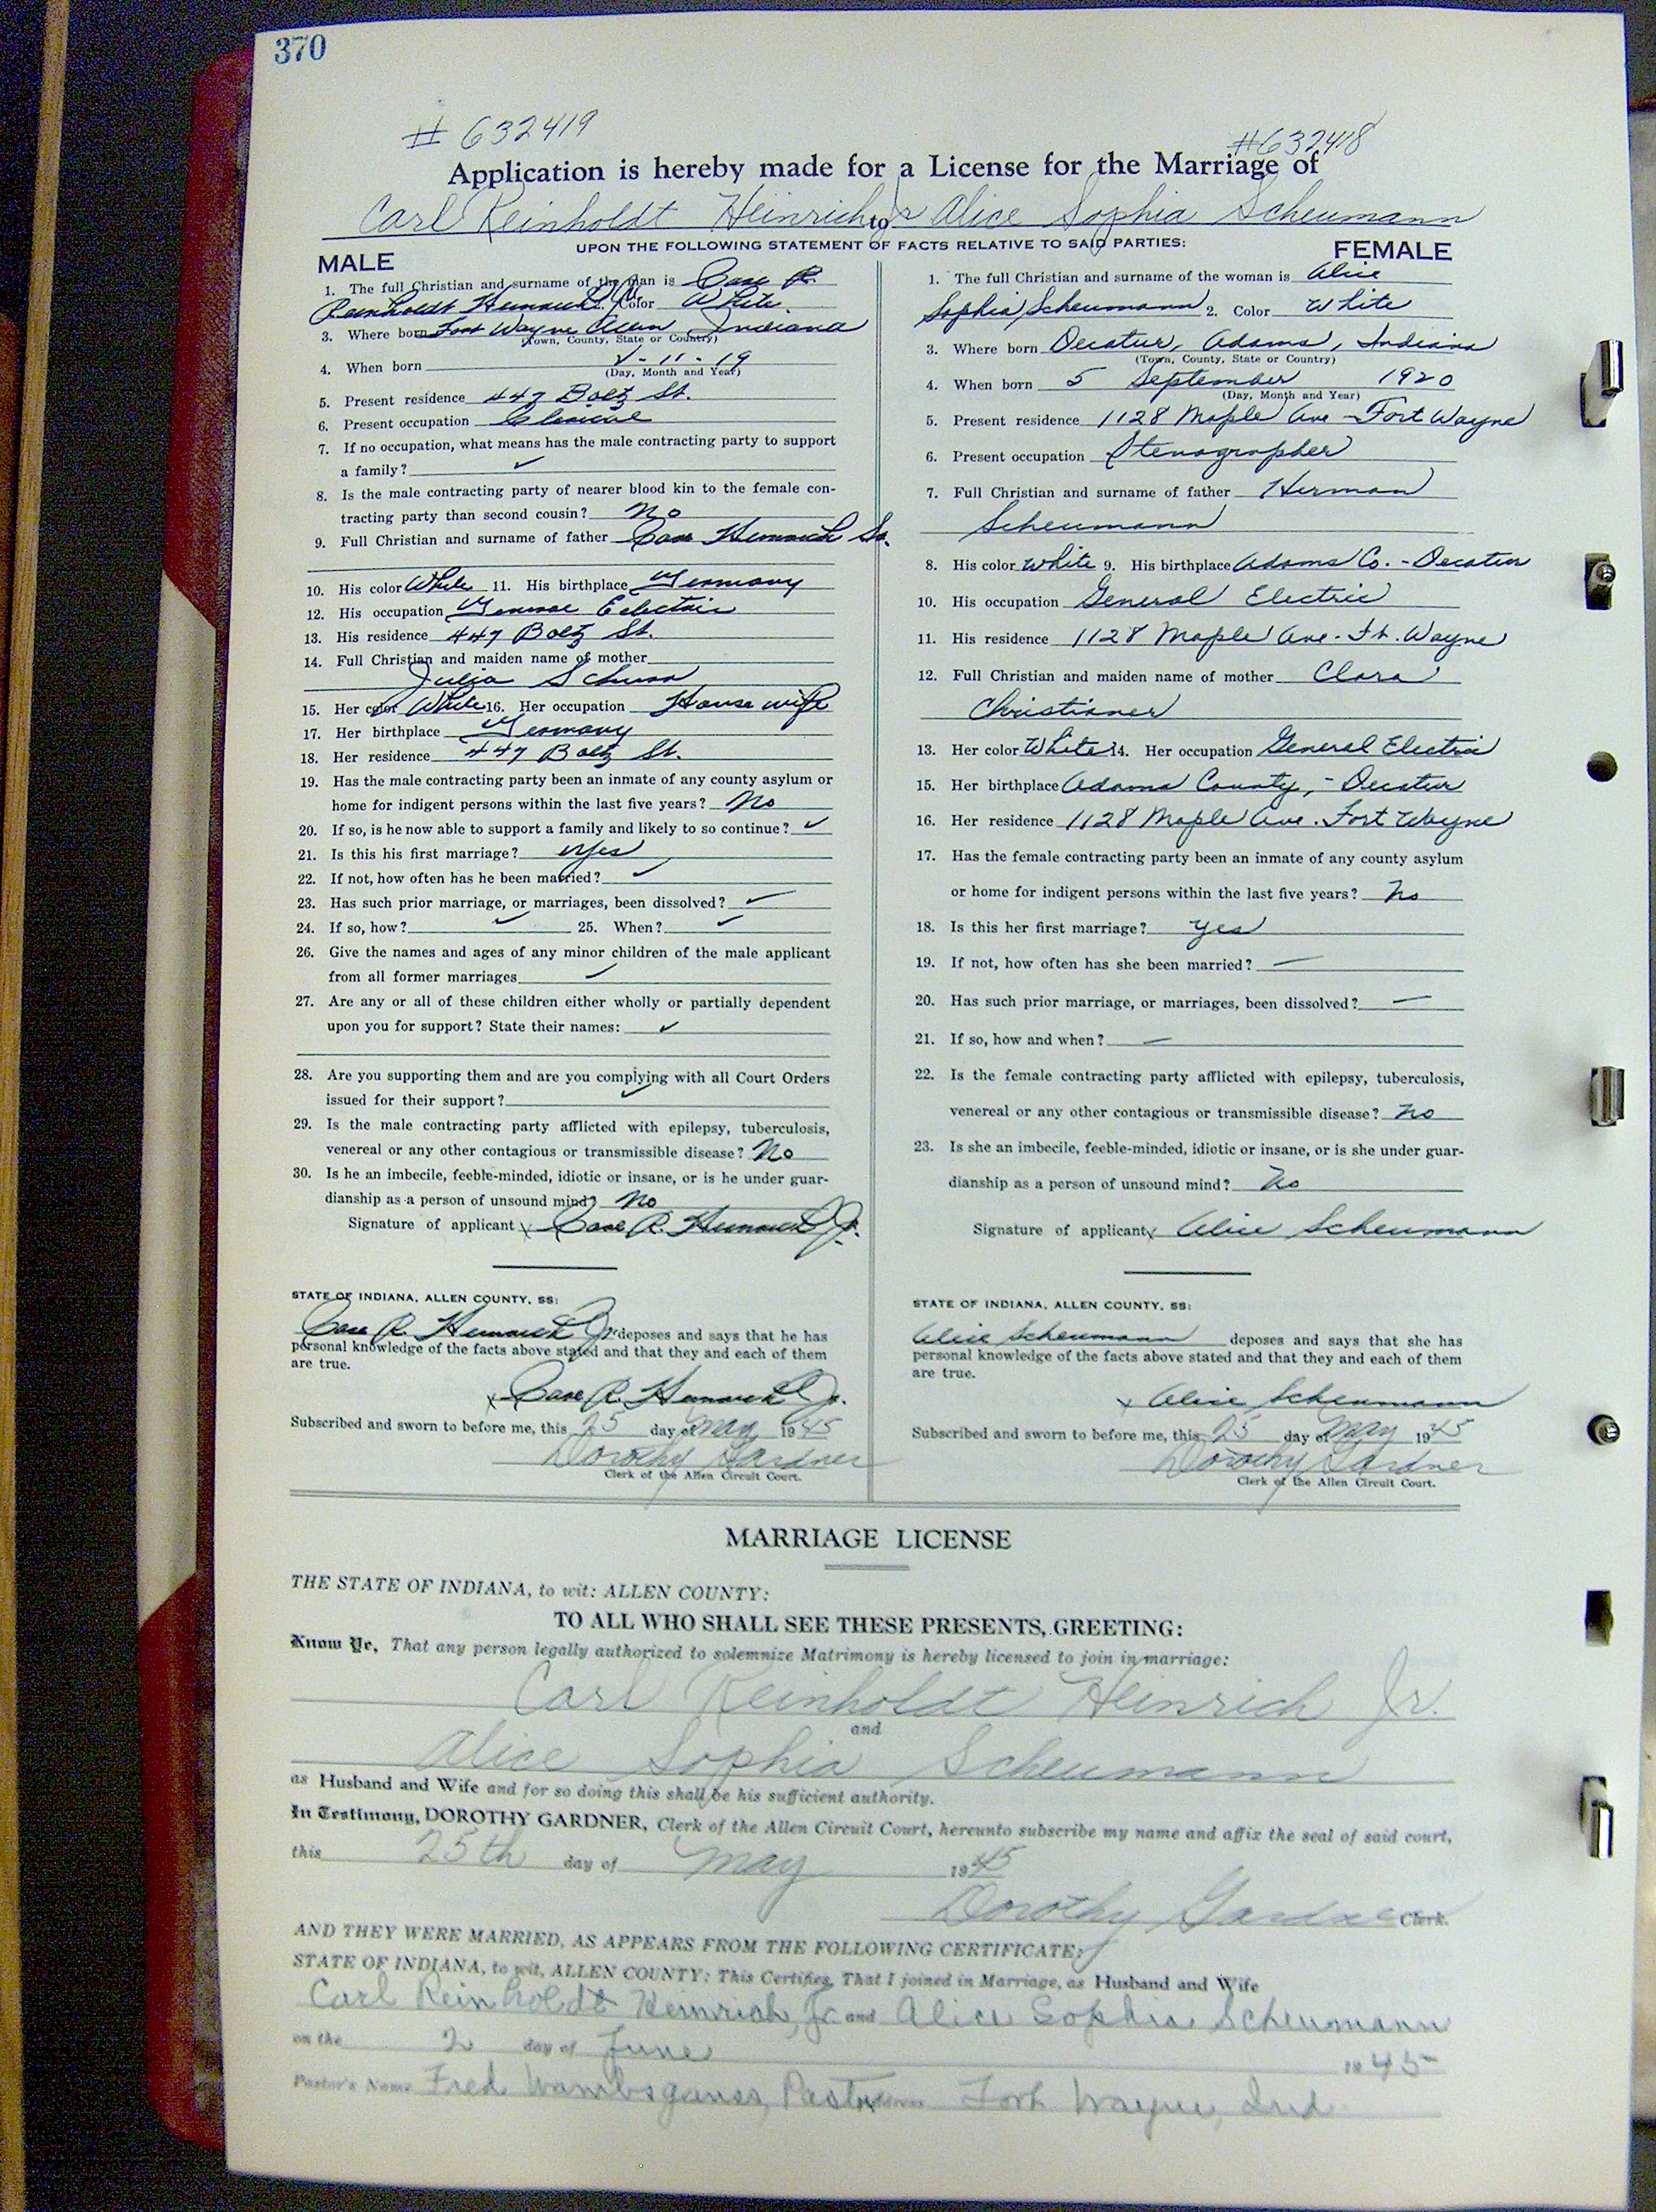 370
# 632419 #632418
Application is hereby made for a License for the Marriage of
Carl Reinholdt Heinrich Jr to Alice Sophia Scheumann
UPON THE FOLLOWING STATEMENT OF FACTS RELATIVE TO SAID PARTIES:
MALE
1. The full Christian and surname of the man is Carl R.
Reinholdt Heinrich Jr. Color White
3. Where born Fort Wayne Allen Indiana
(Town, County, State or Country)
4. When born -11-19
(Day, Month and Year)
5. Present residence 447 Boltz St.
6. Present occupation
7. If no occupation, what means has the male contracting party to support
a family? ✓
8. Is the male contracting party of nearer blood kin to the female con-
tracting party than second cousin? No
9. Full Christian and surname of father Carl Heinrich Sr.
10. His color White 11. His birthplace Germany
12. His occupation General Electric
13. His residence 447 Boltz St.
14. Full Christian and maiden name of mother
Julia
15. Her color White 16. Her occupation House wife
17. Her birthplace Germany
18. Her residence 447 Boltz St.
19. Has the male contracting party been an inmate of any county asylum or
home for indigent persons within the last five years? No
20. If so, is he now able to support a family and likely to so continue? ✓
21. Is this his first marriage? Yes
22. If not, how often has he been married? ✓
23. Has such prior marriage, or marriages, been dissolved? ✓
24. If so, how? ✓ 25. When? ✓
26. Give the names and ages of any minor children of the male applicant
from all former marriages ✓
27. Are any or all of these children either wholly or partially dependent
upon you for support? State their names: ✓
28. Are you supporting them and are you complying with all Court Orders
issued for their support? ✓
29. Is the male contracting party afflicted with epilepsy, tuberculosis,
venereal or any other contagious or transmissible disease? No
30. Is he an imbecile, feeble-minded, idiotic or insane, or is he under guar-
dianship as a person of unsound mind? No
Signature of applicant x Carl R. Heinrich Jr.
STATE OF INDIANA, ALLEN COUNTY, SS:
Carl R. Heinrich Jr. deposes and says that he has
personal knowledge of the facts above stated and that they and each of them
are true.
x Carl R. Heinrich Jr.
Subscribed and sworn to before me, this 25 day of May 1945
Dorothy Gardner
Clerk of the Allen Circuit Court.
FEMALE
1. The full Christian and surname of the woman is Alice
Sophia Scheumann 2. Color White
3. Where born Decatur, Adams, Indiana
(Town, County, State or Country)
4. When born 5 September 1920
(Day, Month and Year)
5. Present residence 1128 Maple Ave - Fort Wayne
6. Present occupation Stenographer
7. Full Christian and surname of father Herman
Scheumann
8. His color White 9. His birthplace Adams Co. - Decatur
10. His occupation General Electric
11. His residence 1128 Maple Ave. Ft. Wayne
12. Full Christian and maiden name of mother Clara
Christianer
13. Her color White 14. Her occupation General Electric
15. Her birthplace Adams County, - Decatur
16. Her residence 1128 Maple Ave. Fort Wayne
17. Has the female contracting party been an inmate of any county asylum
or home for indigent persons within the last five years? No
18. Is this her first marriage? Yes
19. If not, how often has she been married? —
20. Has such prior marriage, or marriages, been dissolved? —
21. If so, how and when? —
22. Is the female contracting party afflicted with epilepsy, tuberculosis,
venereal or any other contagious or transmissible disease? No
23. Is she an imbecile, feeble-minded, idiotic or insane, or is she under guar-
dianship as a person of unsound mind? No
Signature of applicant x Alice Scheumann
STATE OF INDIANA, ALLEN COUNTY, SS:
Alice Scheumann deposes and says that she has
personal knowledge of the facts above stated and that they and each of them
are true.
x Alice Scheumann
Subscribed and sworn to before me, this 25 day of May 1945
Dorothy Gardner
Clerk of the Allen Circuit Court.
MARRIAGE LICENSE
THE STATE OF INDIANA, to wit: ALLEN COUNTY:
TO ALL WHO SHALL SEE THESE PRESENTS, GREETING:
Know Ye, That any person legally authorized to solemnize Matrimony is hereby licensed to join in marriage:
Carl Reinholdt Heinrich Jr.
and
Alice Sophia Scheumann
as Husband and Wife and for so doing this shall be his sufficient authority.
In Testimony, DOROTHY GARDNER, Clerk of the Allen Circuit Court, hereunto subscribe my name and affix the seal of said court,
this 25th day of May 1945
Dorothy Gardner Clerk.
AND THEY WERE MARRIED, AS APPEARS FROM THE FOLLOWING CERTIFICATE:
STATE OF INDIANA, to wit, ALLEN COUNTY: This Certifies, That I joined in Marriage, as Husband and Wife
Carl Reinholdt Heinrich, Jr. and Alice Sophia Scheumann
on the 2 day of June 1945
Pastor's Name Fred Wambsganss, Pastor Address Fort Wayne, Ind.